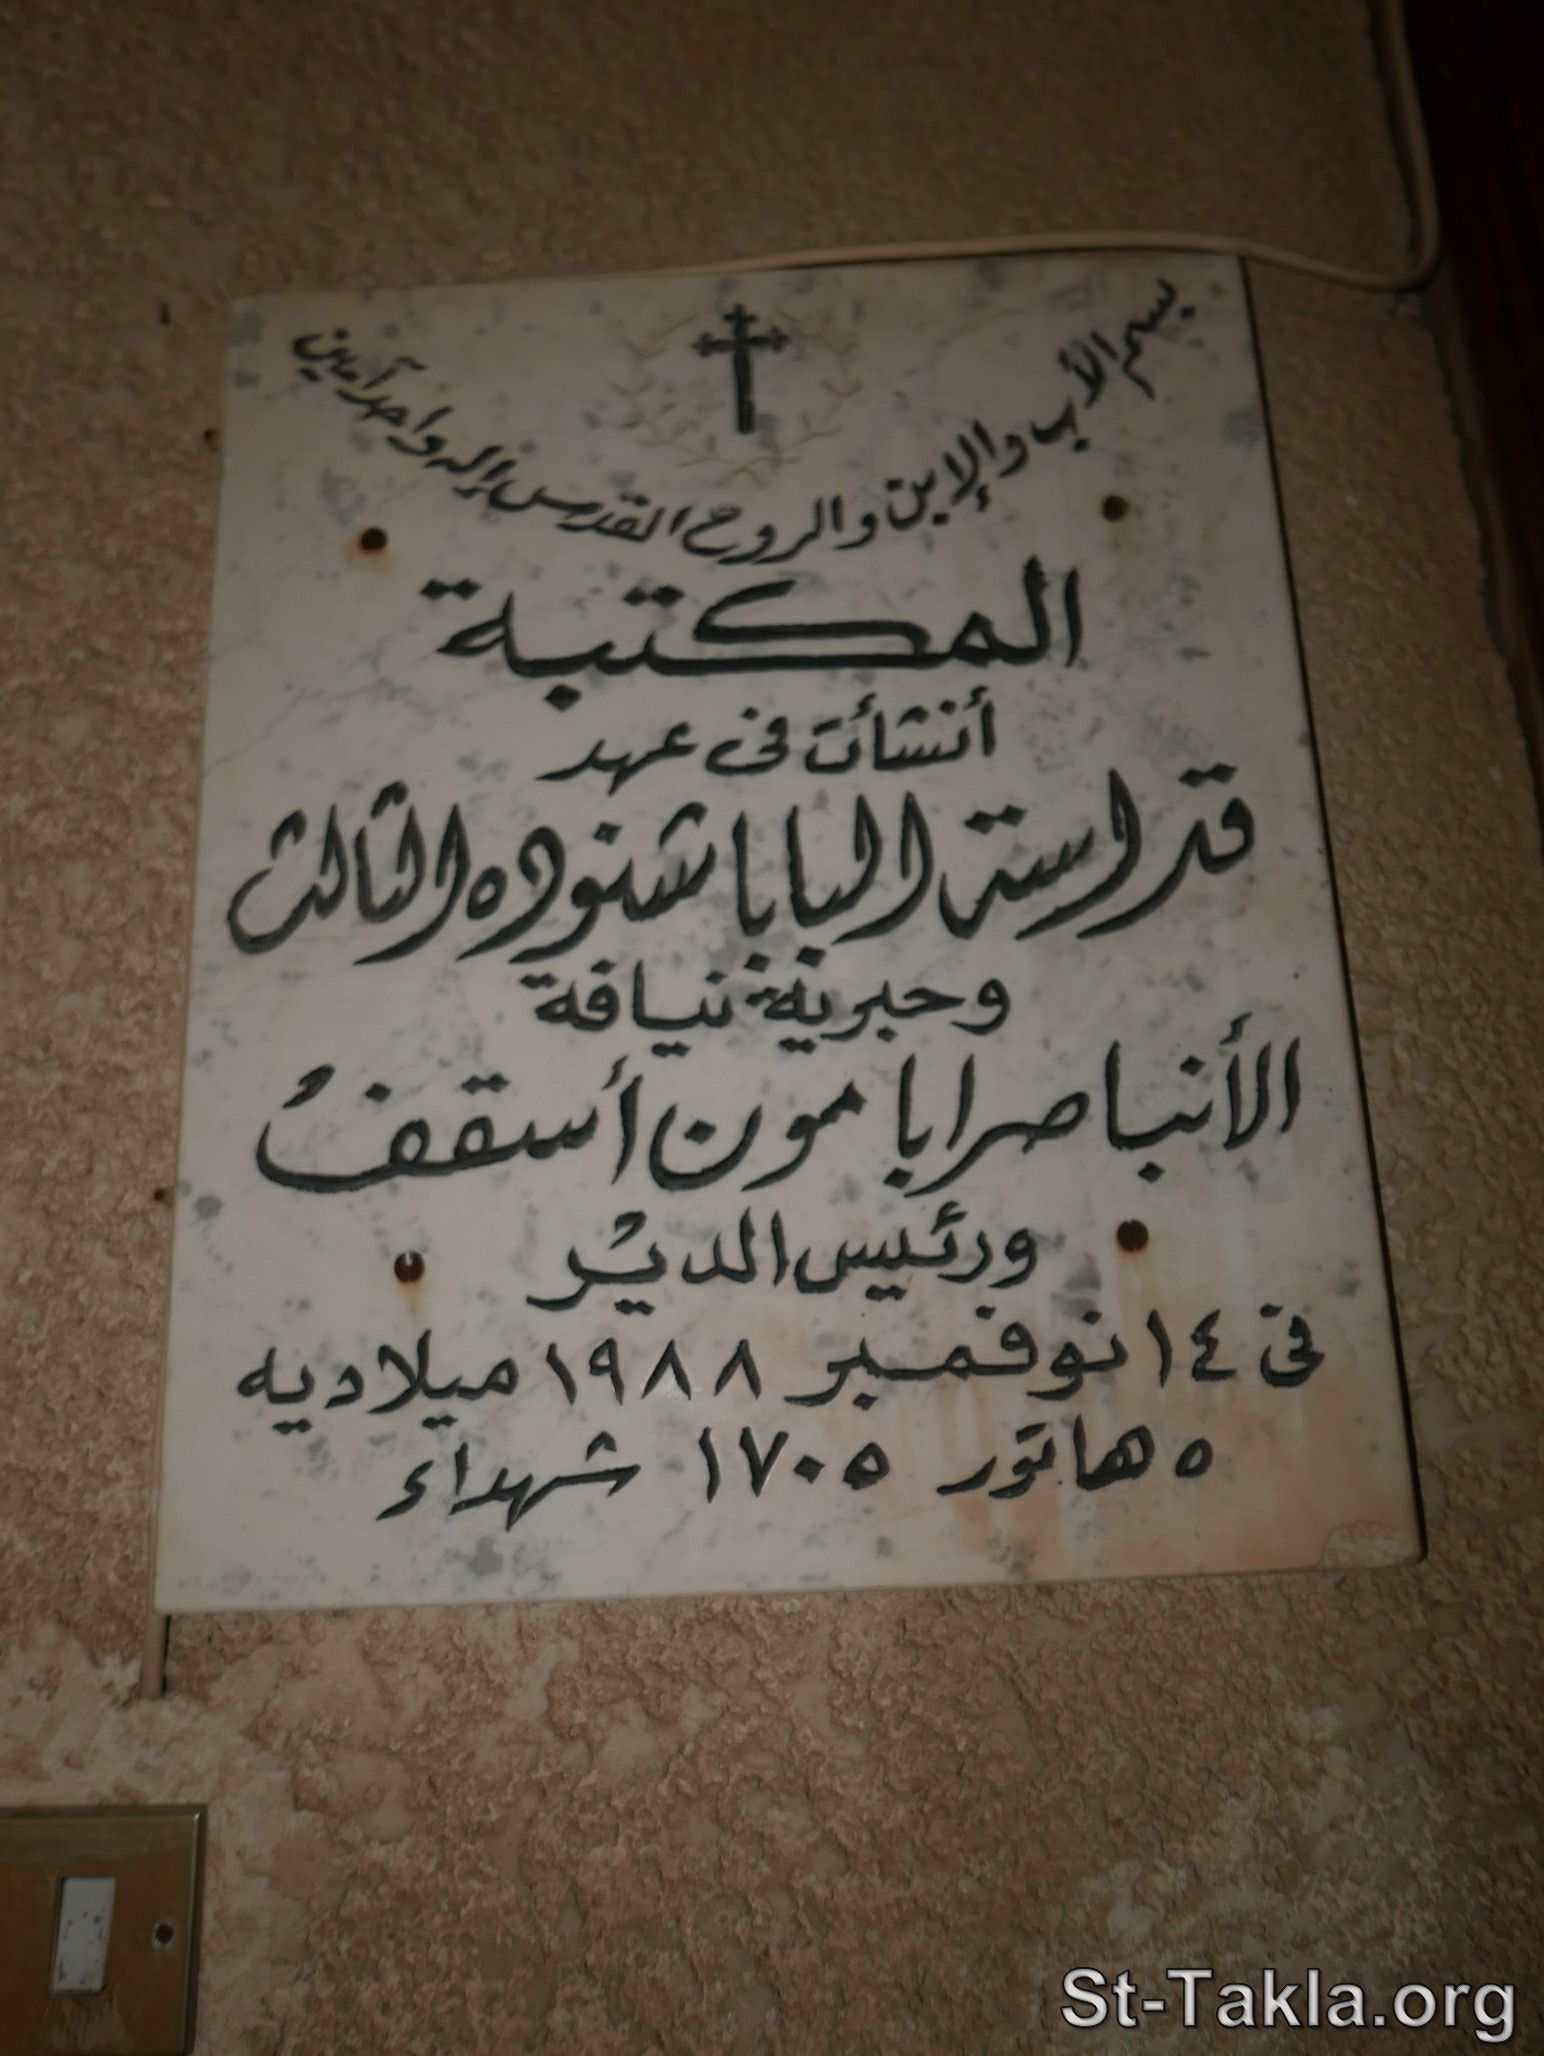 بسم الأب والإبن والروح القدس إله واحد آمين
المكتبة
أنشأت فى عهد
قداسة البابا شنوده الثالث
وحبرية نيافة
الأنبا صرابامون أسقفُ
ورئيس الديْر
فى ١٤ نوفمبر ١٩٨٨ ميلاديه
٥ هاتور ١٧٠٥ شهداء
St-Takla.org